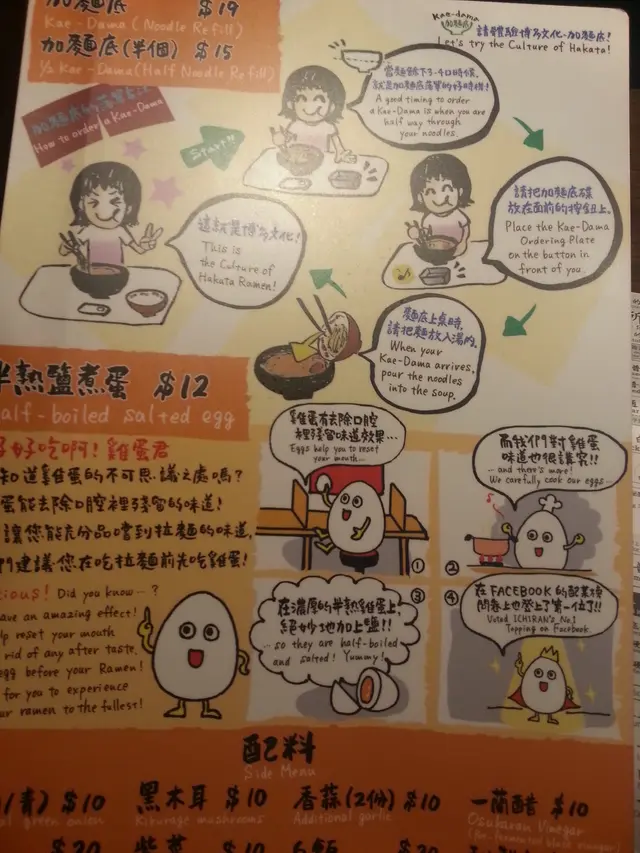 加麵底 $19
Kae-Dama (Noodle Refill)
加麵底(半個) $15
1/2 Kae-Dama (Half Noodle Refill)
Kae-dama
請體驗博多文化-加麵底!
Let's try the Culture of Hakata!
How to order a Kae-Dama
Start!!
當麵餘下3-4口時候,
就是加麵底落單的好時機!
A good timing to order
a Kae-Dama is when you are
half way through
your noodles.
請把加麵底碟
放在面前的按鈕上。
Place the Kae-Dama
Ordering Plate
on the button in
front of you.
麵底上桌時,
請把麵放入湯內。
When your
Kae-Dama arrives,
pour the noodles
into the soup.
這就是博多文化!
This is
the Culture of
Hakata Ramen!
半熟鹽煮蛋 $12
Half-boiled salted egg
好好吃啊! 雞蛋君
知道雞蛋的不可思議之處嗎?
蛋能去除口腔裡殘留的味道!
讓您能充分品嚐到拉麵的味道,
們建議您在吃拉麵前先吃雞蛋!
Did you know..?
ave an amazing effect!
lp reset your mouth
rid of any after taste.
egg before your Ramen!
for you to experience
ur ramen to the fullest!
雞蛋有去除口腔
裡殘留味道效果…
Eggs help you to reset
your mouth...
①
而我們對雞蛋
味道也很講究!!
...and there's more!
We carefully cook our eggs...
②
在濃厚的半熟雞蛋上,
絕妙地加上鹽!!
...so they are half-boiled
and salted! Yummy!
③
在FACEBOOK的配菜榜
問卷上也登上了第一位了!!
Voted ICHIRAN's No.1
Topping on Facebook.
④
配料
Side Menu
(青) $10
green onion
黑木耳 $10
Kikurage mushrooms
香蒜(2份) $10
Additional garlic
一蘭醋 $10
Osukaran Vinegar
$20
紫菜 $10
白飯 $20